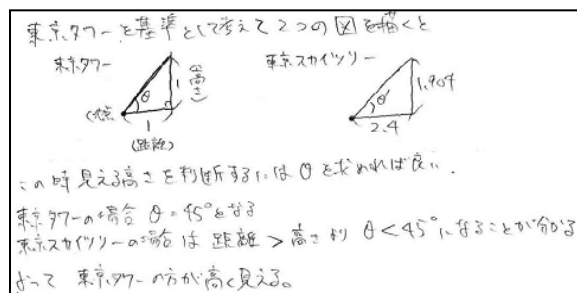 東京タワーを基準として考えて2つの図を描くと
東京タワー
東京スカイツリー
(地点)
θ
1
(高さ)
1
(距離)
θ'
1.904
2.4
この時見える高さを判断するにはθを求めれば良い.
東京タワーの場合 θ=45°となる
東京スカイツリーの場合は 距離>高さより θ<45°になることが分かる
よって 東京タワーの方が高く見える。